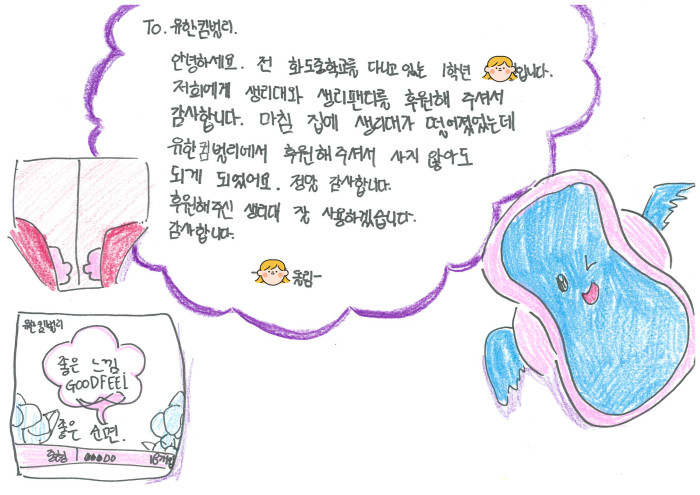 To. 유한킴벌리.
안녕하세요. 전 화도중학교를 다니고 있는 1학년 입니다.
저희에게 생리대와 생리팬티를 후원해 주셔서
감사합니다. 마침 집에 생리대가 떨어졌었는데
유한킴벌리에서 후원해주셔서 사지 않아도
되게 되었어요. 정말 감사합니다.
후원해주신 생리대 잘 사용하겠습니다.
감사합니다.
- 올림-
유한킴벌리
좋은 느낌
GOODFEEl
좋은 순면.
중형
16개입